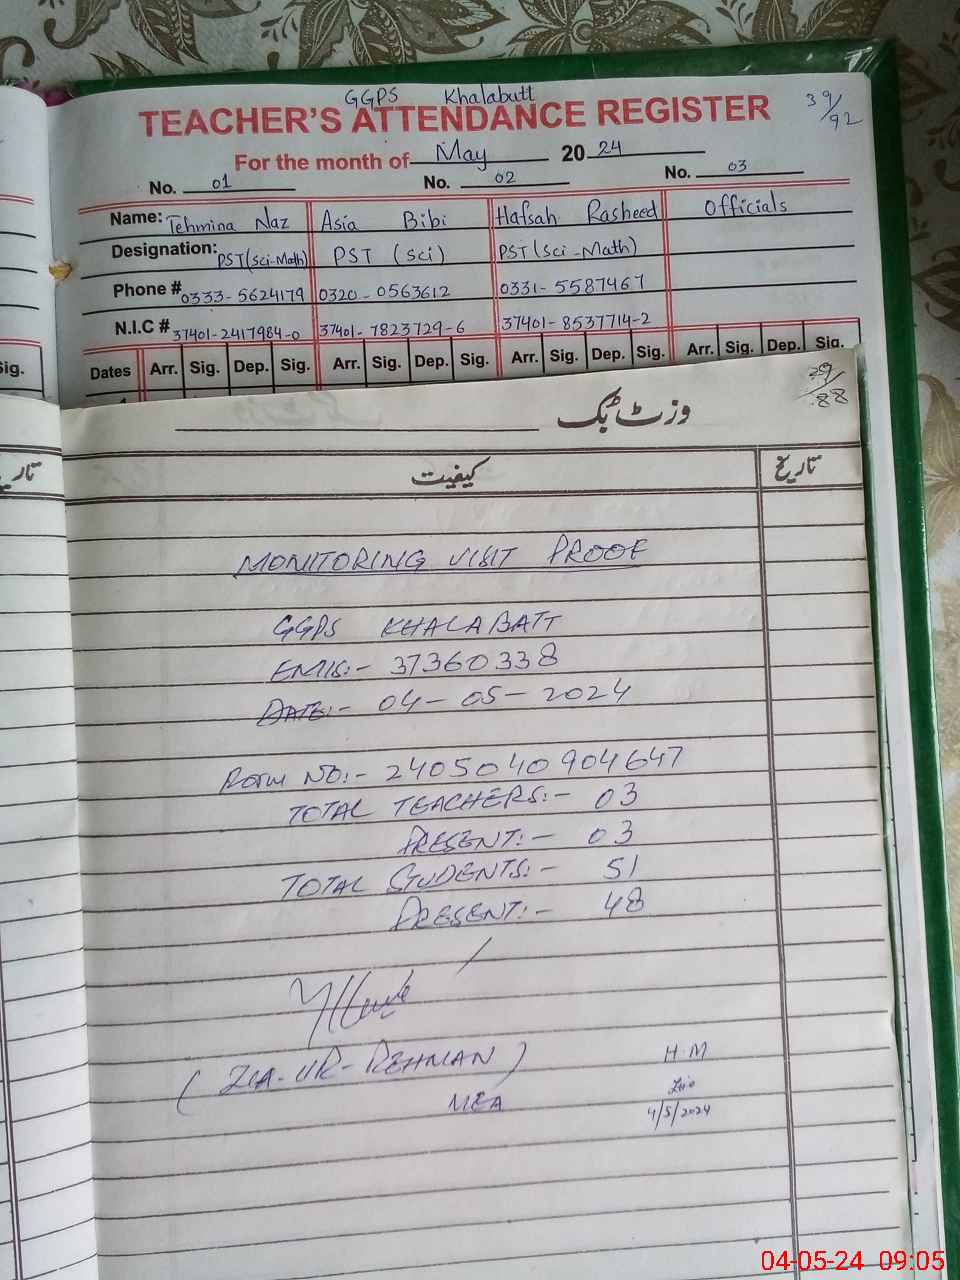 GGPS Khalabutt
TEACHER'S ATTENDANCE REGISTER
39/92
For the month of May 2024
No. 01 No. 02 No. 03
Name: Tehmina Naz Asia Bibi Hafsah Rasheed Officials
Designation: PST(Sci-Math) PST (Sci) PST(Sci-Math)
Phone # 0333-5624179 0320-0563612 0331-5587467
N.I.C # 37401-2417984-0 37401-7823729-6 37401-8537714-2
Sig. Dates Arr. Sig. Dep. Sig. Arr. Sig. Dep. Sig. Arr. Sig. Dep. Sig. Arr. Sig. Dep. Sig.
وزٹ بک
29/88
کیفیت تاریخ
MONITORING VISIT PROOF
GGPS KHALABATT
EMIS:- 37360338
DATE:- 04-05-2024
FORM NO:- 2405040904647
TOTAL TEACHERS:- 03
PRESENT:- 03
TOTAL STUDENTS:- 51
PRESENT:- 48
(ZIA-UR-REHMAN) H.M
MEA
4/5/2024
04-05-24 09:05